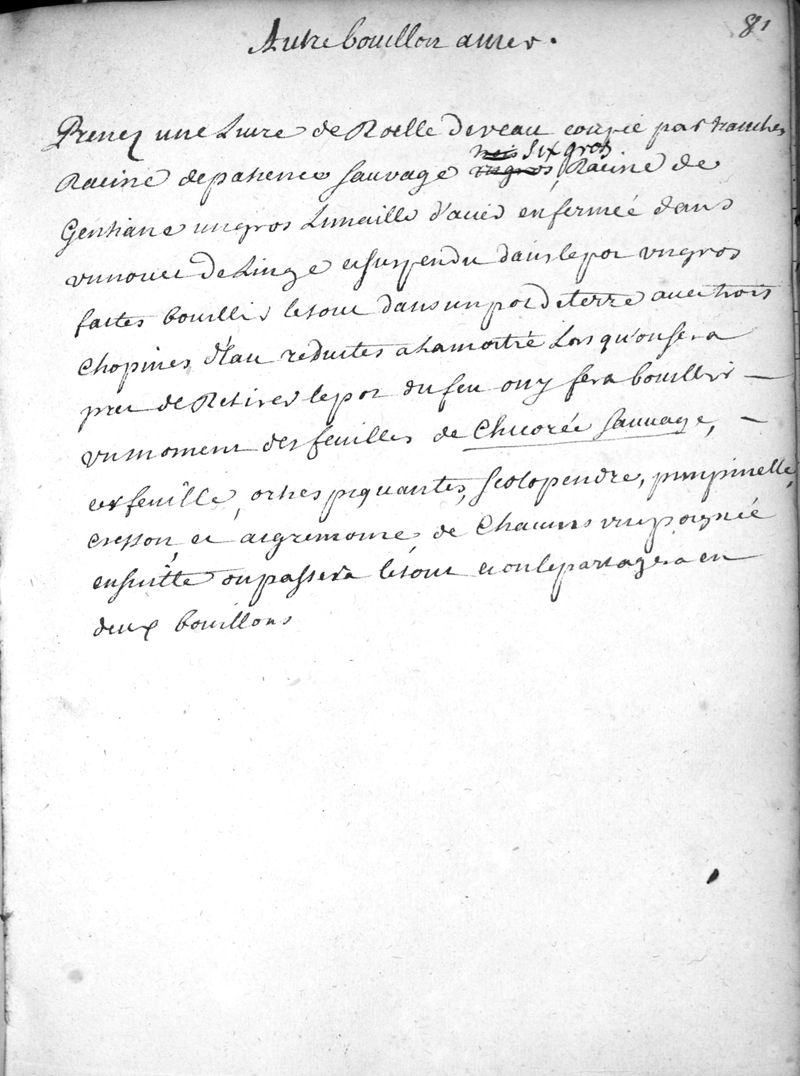 81
Autre bouillon amer.
Prenez une Livre de Roëlle de veau coupée par tranches
six gros
Racine de patience sauvage un gros Racine de
Gentiane un gros Limaille d'acier enfermée dans
un nouet de Linge et suspendu dans le pot un gros
faites bouillir le tout dans un pot de terre avec trois
chopines d'Eau reduites a la moitié Lorsqu'on sera
pret de Retirer le pot du feu on y fera bouillir —
un moment des feuilles de Chicorée sauvage, —
cerfeuille, orties piquantes, scolopendre, pimpinelle,
cresson, et aigremoine, de chacuns une poignée
ensuitte on passera le tout et on le partagera en
deux bouillons